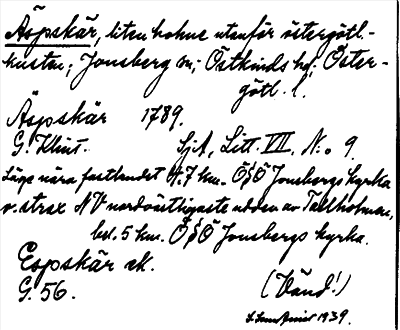 Äspskär, liten holme utanför östergötl.-
kusten; Jonsberg sn; Östkinds hd; Öster-
götl. l.
Äspskär 1789.
G. Klint. Sjök, Litt. VII, N:o 9.
Läge nära fastlandet 4.7 km. ÖSÖ Jonsbergs kyrka
v. strax NV nordöstligaste udden av Tallholmen,
bel. 5 km. ÖSÖ Jonsbergs kyrka.
Espskär ek.
G. 56. (Vänd!)
1939.